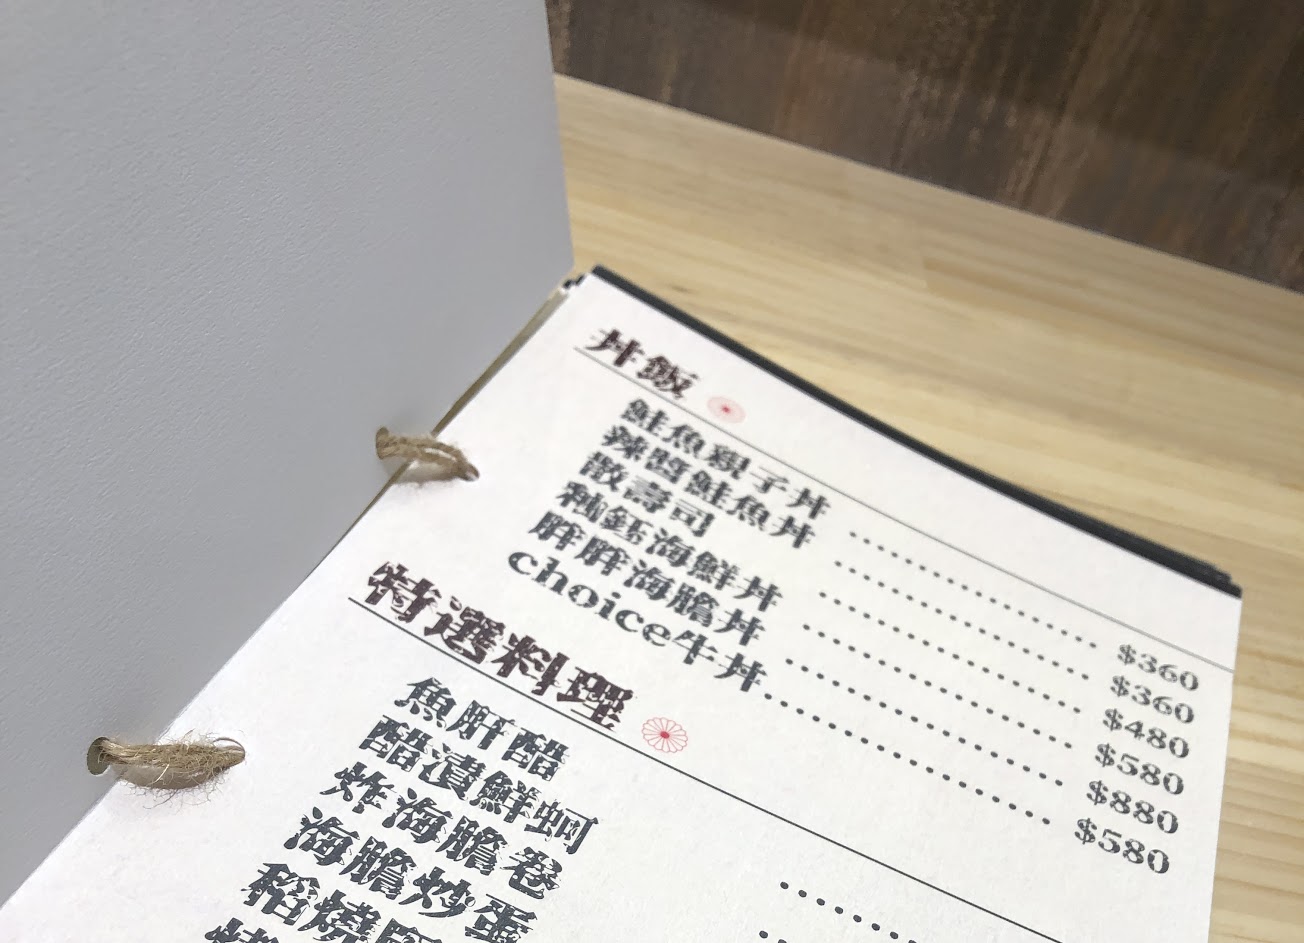 丼飯
鮭魚親子丼 $360
辣醬鮭魚丼 $360
散壽司 $480
秘鈺海鮮丼 $580
胖胖海膽丼 $880
choice牛丼 $580
特選料理
魚肝醋
醋漬鮮蚵
炸海膽卷
海膽炒蛋
稻燒